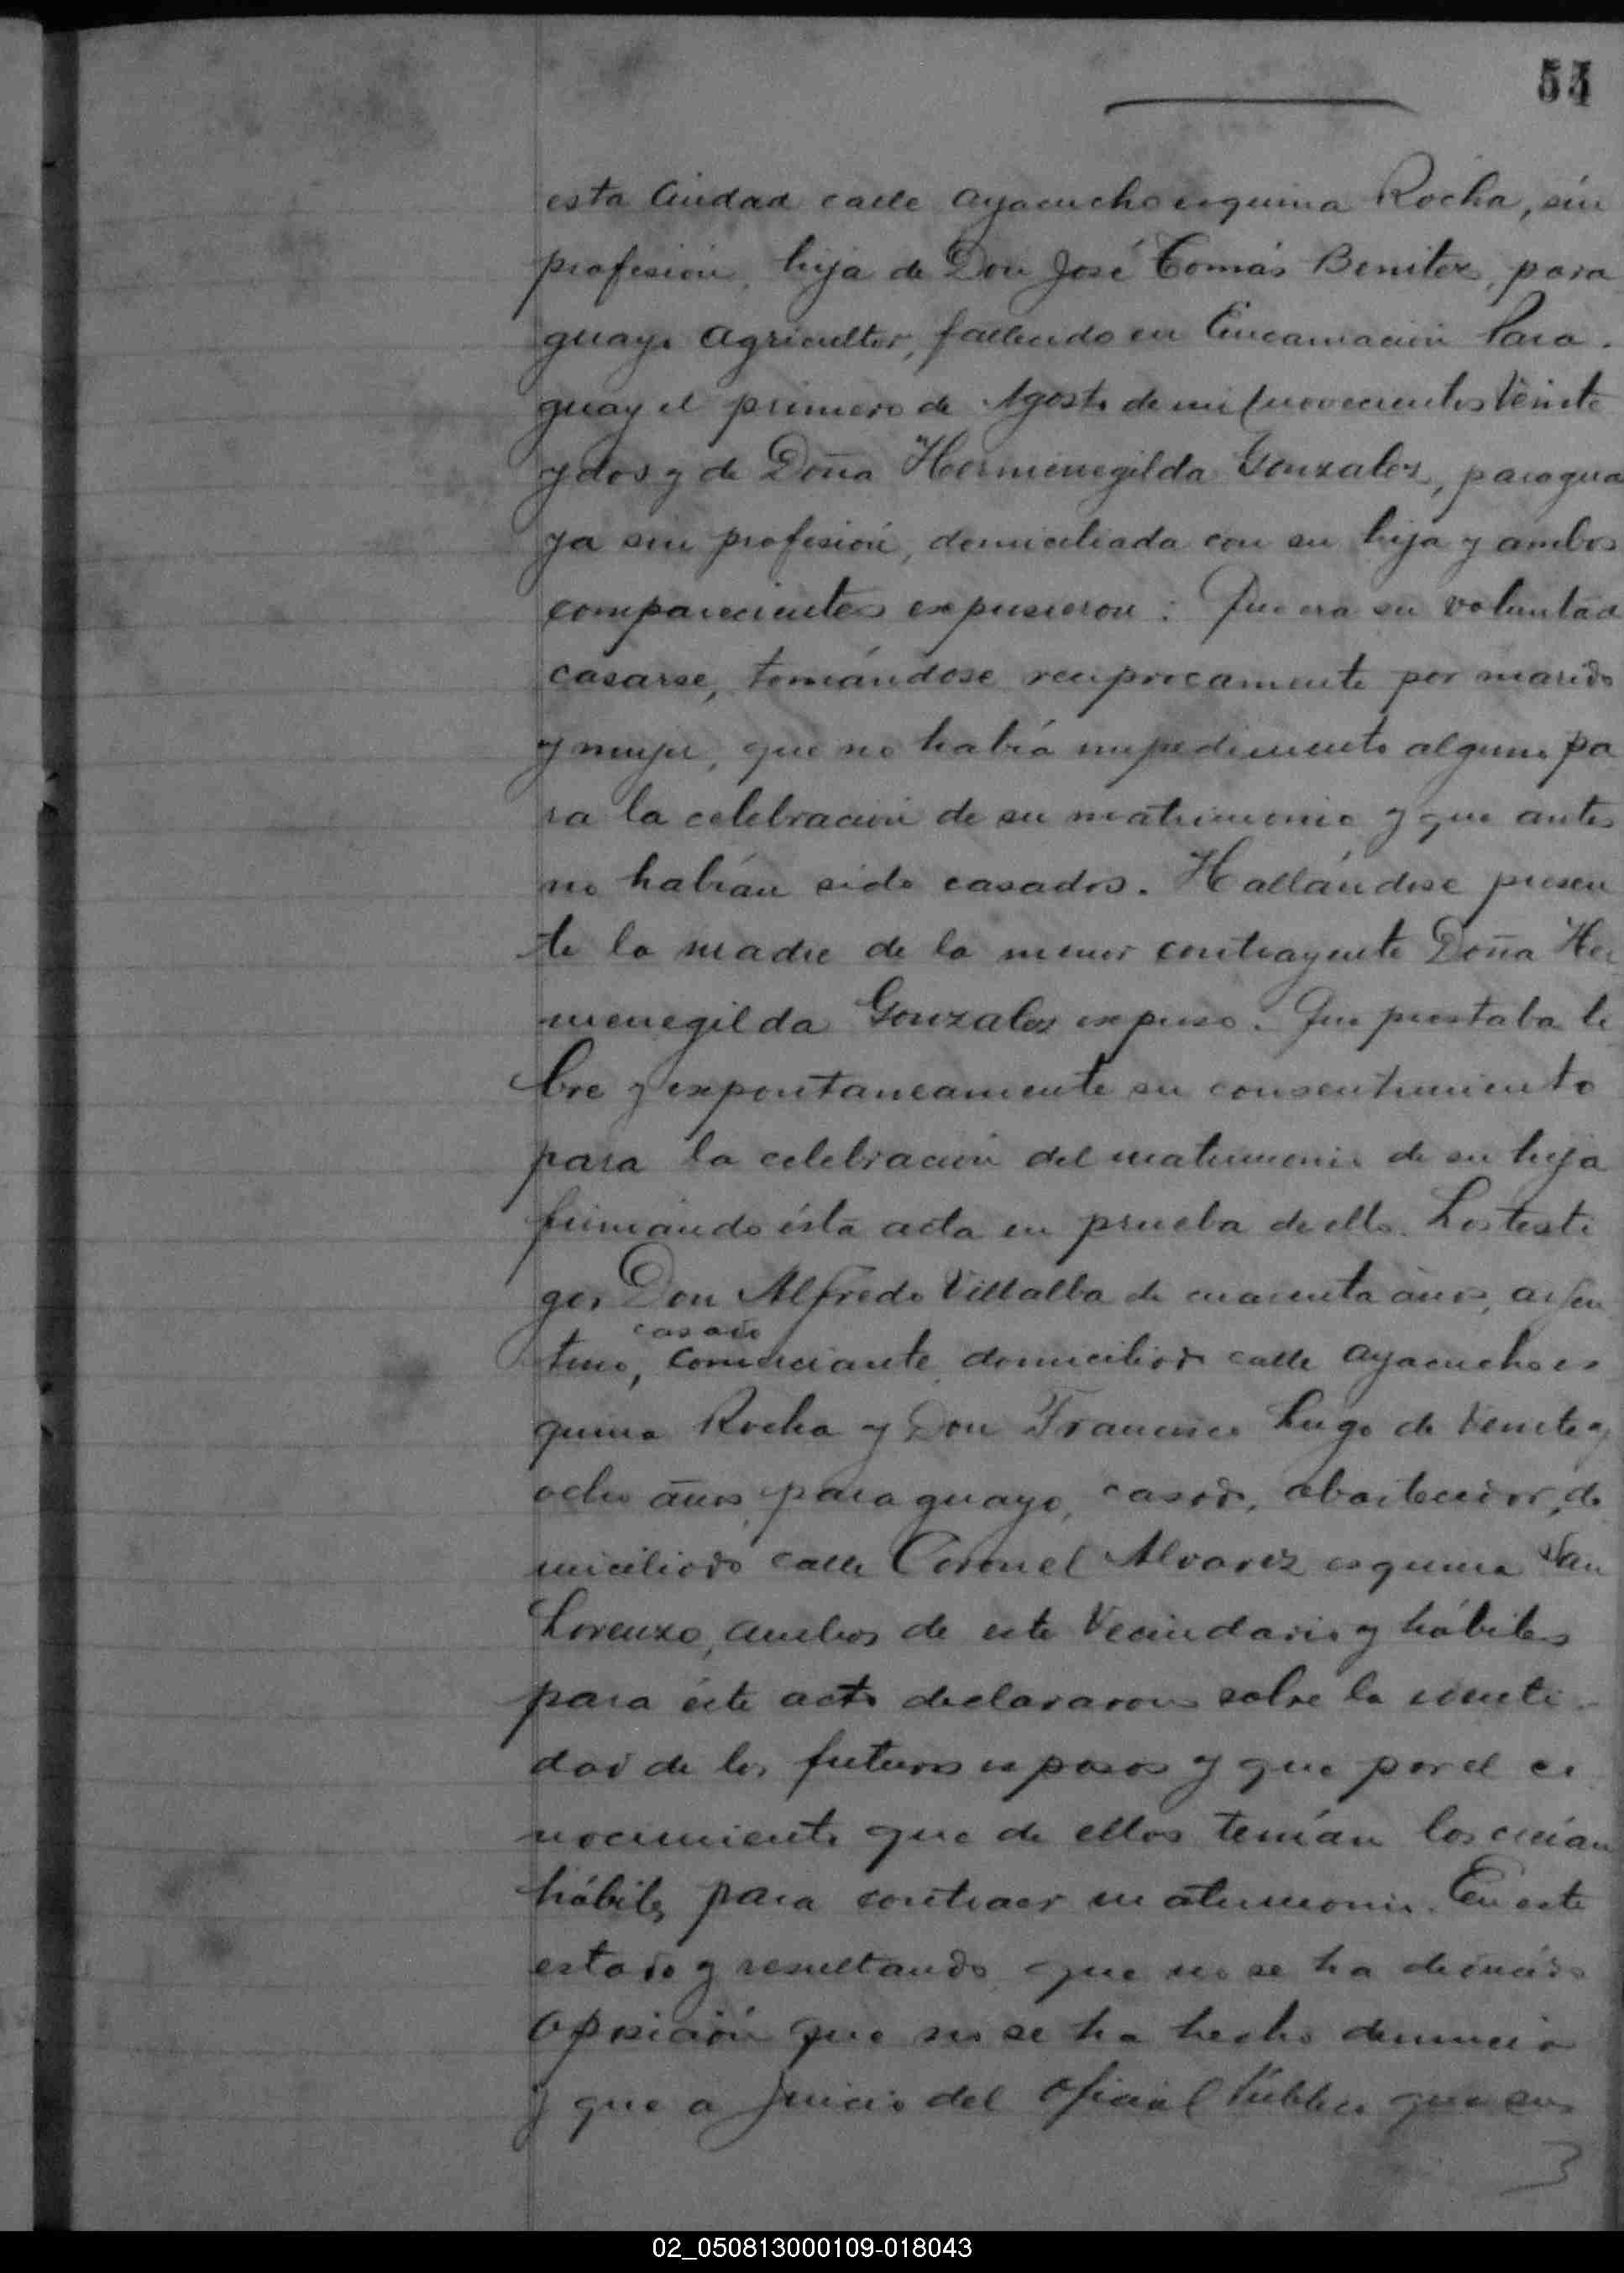 54
esta Ciudad calle Ayacucho esquina Rocha, sin
profesión, hija de Don José Tomás Benitez, para
guayo Agricultor, fallecido en Encarnación Para-
guay el primero de Agosto de mil novecientos Veinte
y dos y de Doña Hermenegilda Gonzalez, paragua
ya sin profesión, domiciliada con su hija y ambos
comparecientes expusieron: Que era su voluntad
casarse, tomándose reciprocamente por marido
y mujer, que no había impedimento alguno pa
ra la celebración de su matrimonio y que antes
no habían sido casados. Hallándose presen
te la madre de la menor contrayente Doña Her
menegilda Gonzalez expuso: Que prestaba li
bre y expontaneamente su consentimiento
para la celebración del matrimonio de su hija
firmando ésta acta en prueba de ello. Los testi
gos Don Alfredo Villalba de cuarenta años, argen
casado
tino, Comerciante domiciliado calle Ayacucho es
quina Rocha y Don Francisco Lugo de Veinte y
ocho años, paraguayo, casado, abastecedor, do
miciliado calle Coronel Alvarez esquina San
Lorenzo, ambos de este Vecindario y hábiles
para éste acto declararon sobre la identi-
dad de los futuros esposos y que por el co
nocimiento que de ellos tenían los creían
hábiles para contraer matrimonio. En este
estado y resultando que no se ha deducido
oposición que no se ha hecho denuncia
y que a juicio del Oficial Público que sus
02_050813000109-018043